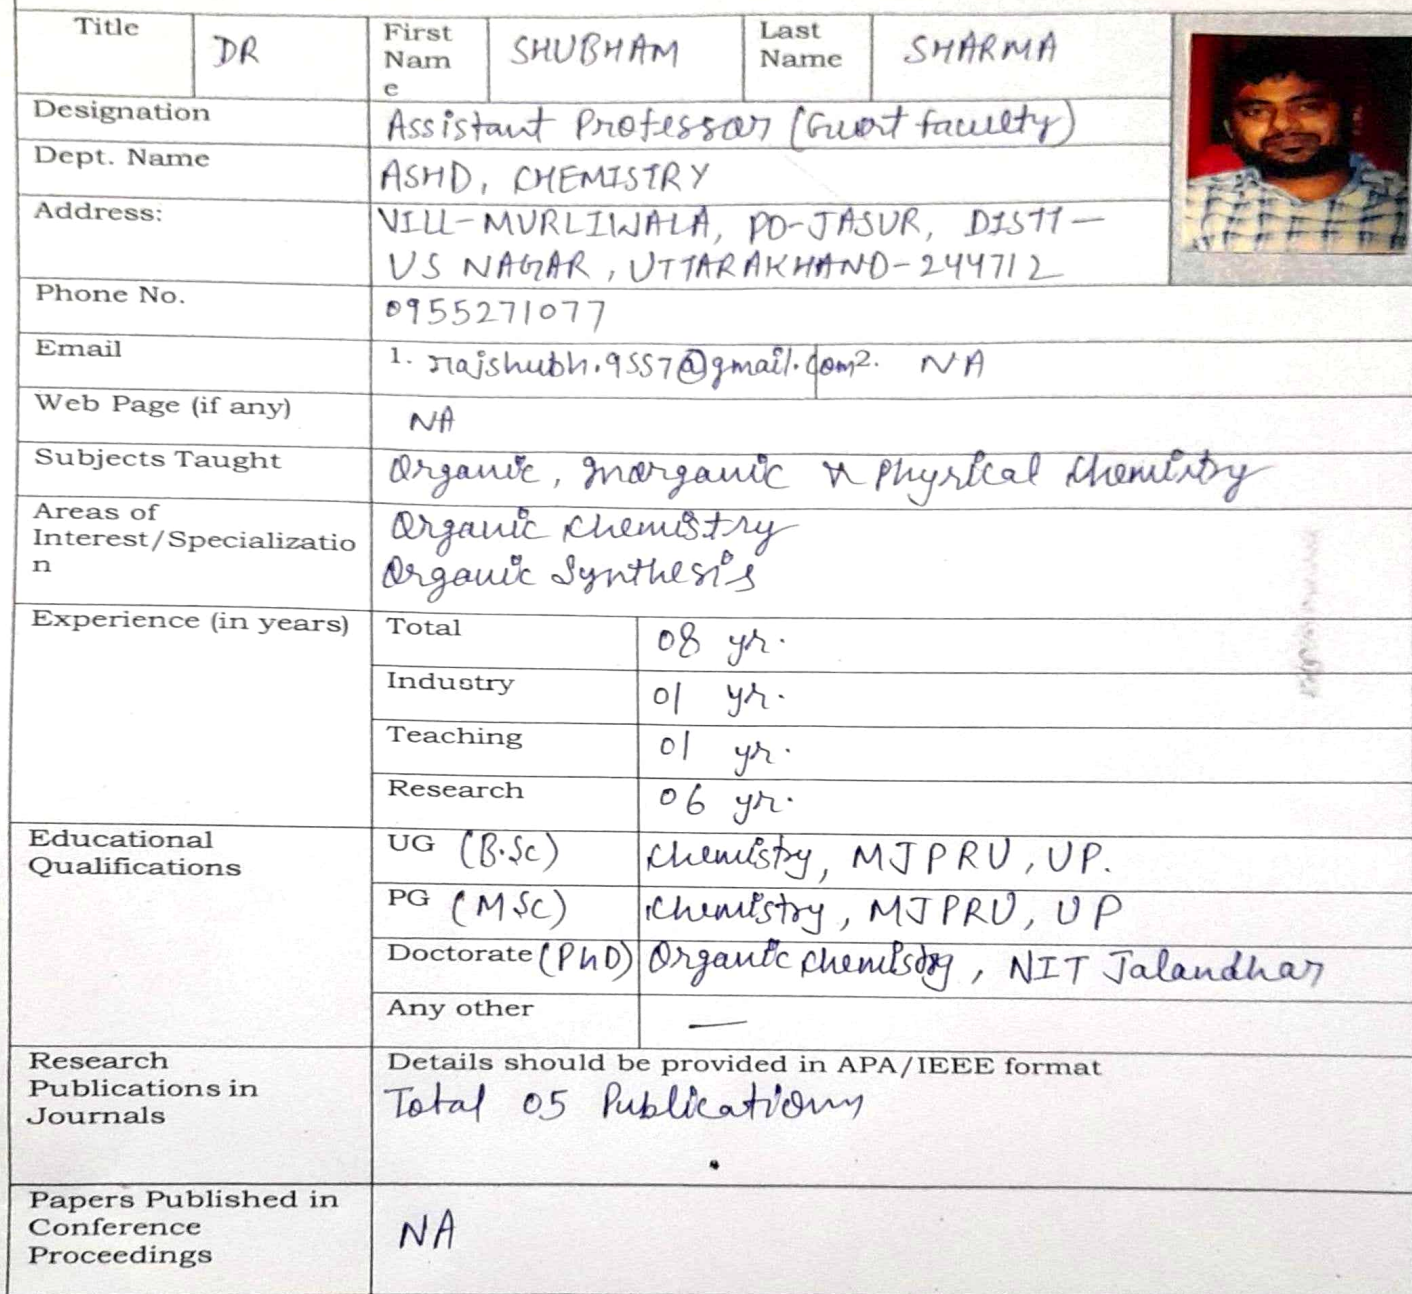 Title DR First Name SHUBHAM Last Name SHARMA
Designation Assistant Professor (Guest faculty)
Dept. Name ASHD, CHEMISTRY
Address: VILL-MURLIWALA, PO-JASUR, DISTT-
US NAGAR, UTTARAKHAND-244712
Phone No. 0955271077
Email 1. rajshubh.9557@gmail.com 2. NA
Web Page (if any) NA
Subjects Taught Organic, Inorganic & Physical Chemistry
Areas of Organic Chemistry
Interest/Specialization Organic Synthesis
Experience (in years) Total 08 yr.
Industry 01 yr.
Teaching 01 yr.
Research 06 yr.
Educational UG (B.Sc) Chemistry, MJPRU, UP.
Qualifications PG (MSc) Chemistry, MJPRU, UP
Doctorate (PhD) Organic Chemistry, NIT Jalandhar
Any other —
Research Details should be provided in APA/IEEE format
Publications in Total 05 Publications
Journals
Papers Published in
Conference NA
Proceedings